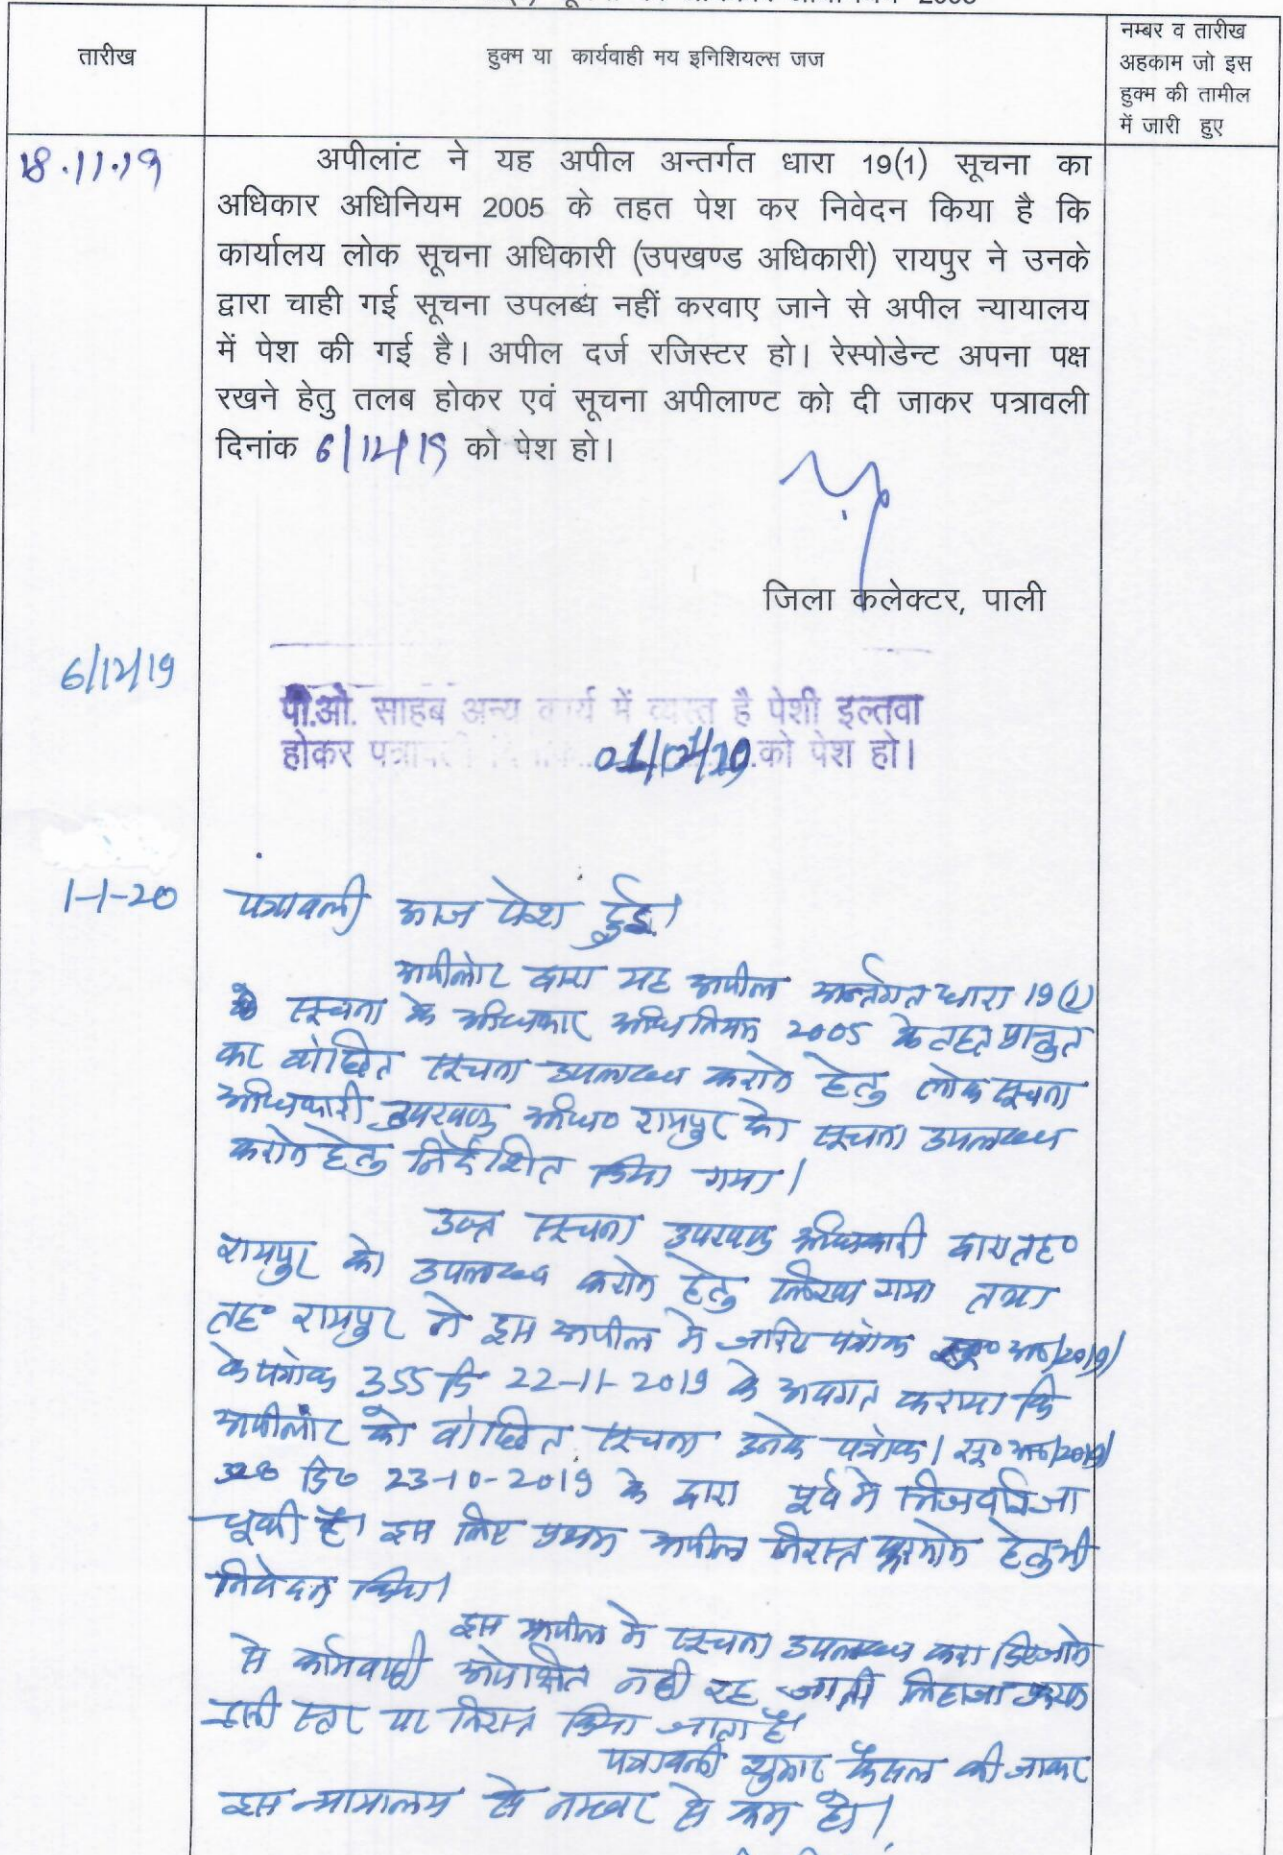 तारीख
हुक्म या कार्यवाही मय इनिशियल्स जज
नम्बर व तारीख
अहकाम जो इस
हुक्म की तामील
में जारी हुए
18.11.19
अपीलांट ने यह अपील अन्तर्गत धारा 19(1) सूचना का
अधिकार अधिनियम 2005 के तहत पेश कर निवेदन किया है कि
कार्यालय लोक सूचना अधिकारी (उपखण्ड अधिकारी) रायपुर ने उनके
द्वारा चाही गई सूचना उपलब्ध नहीं करवाए जाने से अपील न्यायालय
में पेश की गई है। अपील दर्ज रजिस्टर हो। रेस्पोडेन्ट अपना पक्ष
रखने हेतु तलब होकर एवं सूचना अपीलाण्ट को दी जाकर पत्रावली
दिनांक 6/12/19 को पेश हो।
जिला कलेक्टर, पाली
6/12/19
पी.ओ. साहब अन्य कार्य में व्यस्त है पेशी इल्तवा
होकर पत्रावली दिनांक 01/01/20 को पेश हो।
1-1-20
पत्रावली आज पेश हुई।
अपीलांट द्वारा यह अपील अर्न्तगत धारा 19(1)
सूचना के अधिकार अधिनियम 2005 के तहत प्रस्तुत
कर वांछित सूचना उपलब्ध कराने हेतु लोक सूचना
अधिकारी उपखण्ड अधि० रायपुर को सूचना उपलब्ध
कराने हेतु निर्देशित किया गया।
उक्त सूचना उपखण्ड अधिकारी द्वारा तह०
रायपुर को उपलब्ध कराने हेतु लिखा गया तथा
तह० रायपुर ने इस अपील में जरिए पत्रांक सू० अ०/2019/
के पत्रांक 355 दि 22-11-2019 के अवगत कराया कि
अपीलांट को वांछित सूचना इनके पत्रांक/सू० अ०/2019/
328 दि० 23-10-2019 के द्वारा पूर्व में भिजवाई जा
चूकी है। इस लिए प्रथम अपील निरस्त फरमाने हेतु भी
निवेदन किया।
इस अपील में सूचना उपलब्ध करा दिए जाने
से कार्यवाही अपेक्षित नहीं रह जाती लिहाजा
इसी स्तर पर निरस्त किया जाता है।
पत्रावली शुमार फैसल की जाकर
इस न्यायालय से नम्बर से कम हो।